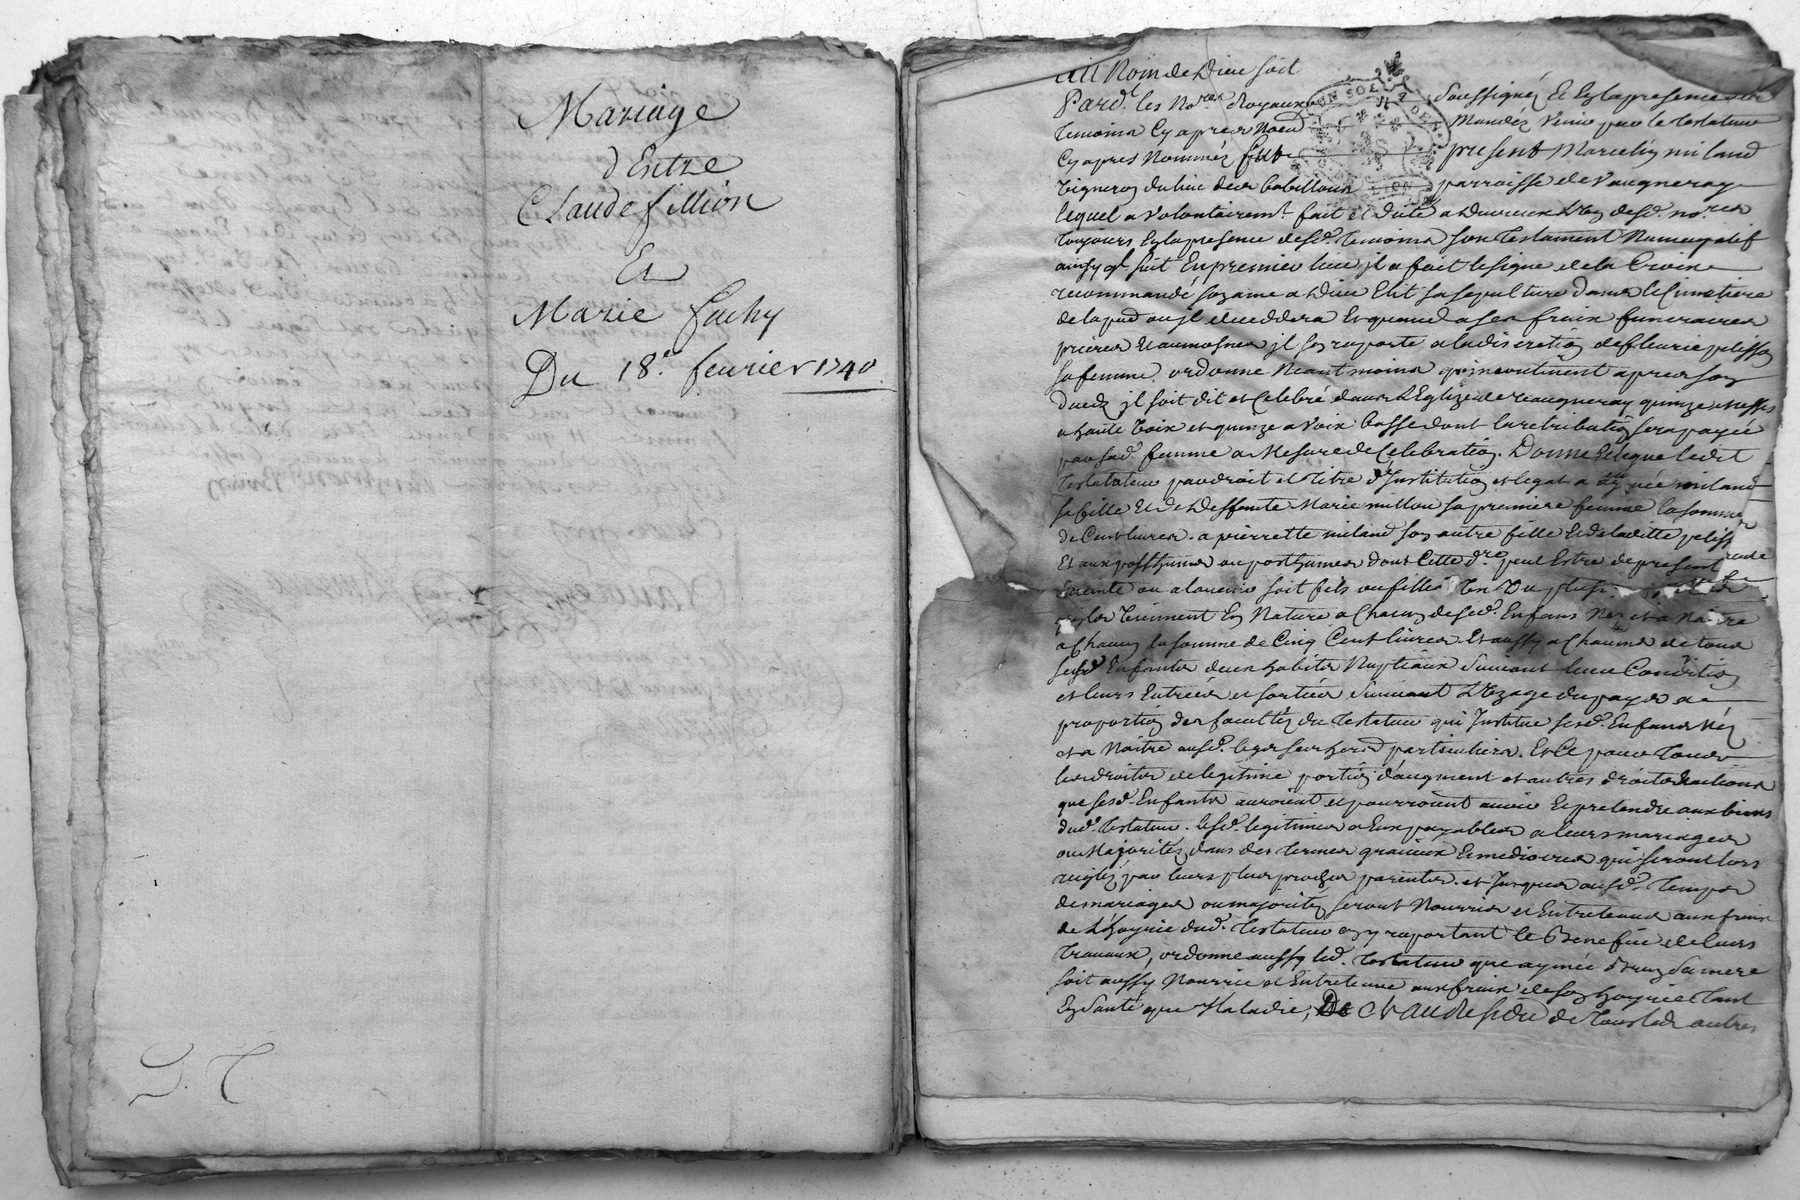 Mariage
d'Entre
Claude fillion
Et
Marie Fachy
Du 18.e feurier 1740
D. T
Au Nom de Dieu soit
Pard.t les No.res Royaux soussignéz Et En la presence des
temoins Cy apres Mandéz Venir par le testateur
Cy apres Nommez fut present Marcelin miland
Vigneron du lieu des parroisse de Vaugneray
lequel a Volontairem.t fait et dicté a desd. no.res
toujours En la presence desd. temoins son testament Nuncupatif
ainsy q.l suit En premier lieu jl a fait le signe de la Croix
recommandé son ame a Dieu Elit sa sepulture dans le Cimetiere
de la par ou jl decedera Et quand a ses fraix funeraires
prieres Et aumosnes jl s'en raporte a la discretion de fleurie pelisson
sa femme. ordonne Neantmoins qu'jncontinent apres son
Deceds jl soit dit et Celebré dans L'Eglize de Vaugneray quinze Messes
a haute Voix et quinze a Voix basse dont la retribution sera payée
par sad. femme a Mesure de Celebration. Donne Et legue ledit
testateur par droit et titre d'Institution et legat a miland
sa fille Et de Deffunte Marie millon sa premiere femme la somme
de Cent livres. a pierrette miland son autre fille Et de laditte peliss
Et aux posthumes ou posthumes dont Cette d.re peut Estre de present
Enceinte ou a l'avenir soit fils ou filles Un Ou plusi
jls Viennent En Nature a Chacun desd. Enfans Nez et a Naitre
a Chacun la somme de Cinq Cent livres. Et aussy a Chacuns de tous
sesd. Enfants deux habits Nuptiaux Suivant leur Condition
et leurs Entrées et sorties Suivant L'Uzage du pays a
proportion des facultés du testateur qui Institue sesd. Enfans Néz
et a Naitre ausd. legs ses hers particuliers. Et Ce pour tous
les droits de legitime portion d'augment et autres droits Nactions
que sesd. Enfants auroient et pourroient avoir Et pretendre aux biens
dud. testateur. lesd. legitimes a Eux payables a leurs mariages
ou Majorités dans des termes gracieux Et mediocres qui seront lors
reiglés par leurs plus proches parents. et Jusques ausd. temps
de mariages ou majorités seront Nourris et Entretenus aux fraix
de L'hoyrie dud. testateur en y raportant le Benefice de leurs
travaux, ordonne aussy led. testateur que aymée sa mere
soit aussy Nourrie et Entretenue aux fraix de son hoyrie tant
En Santé que Maladie, Et Au Residu de tous les autres